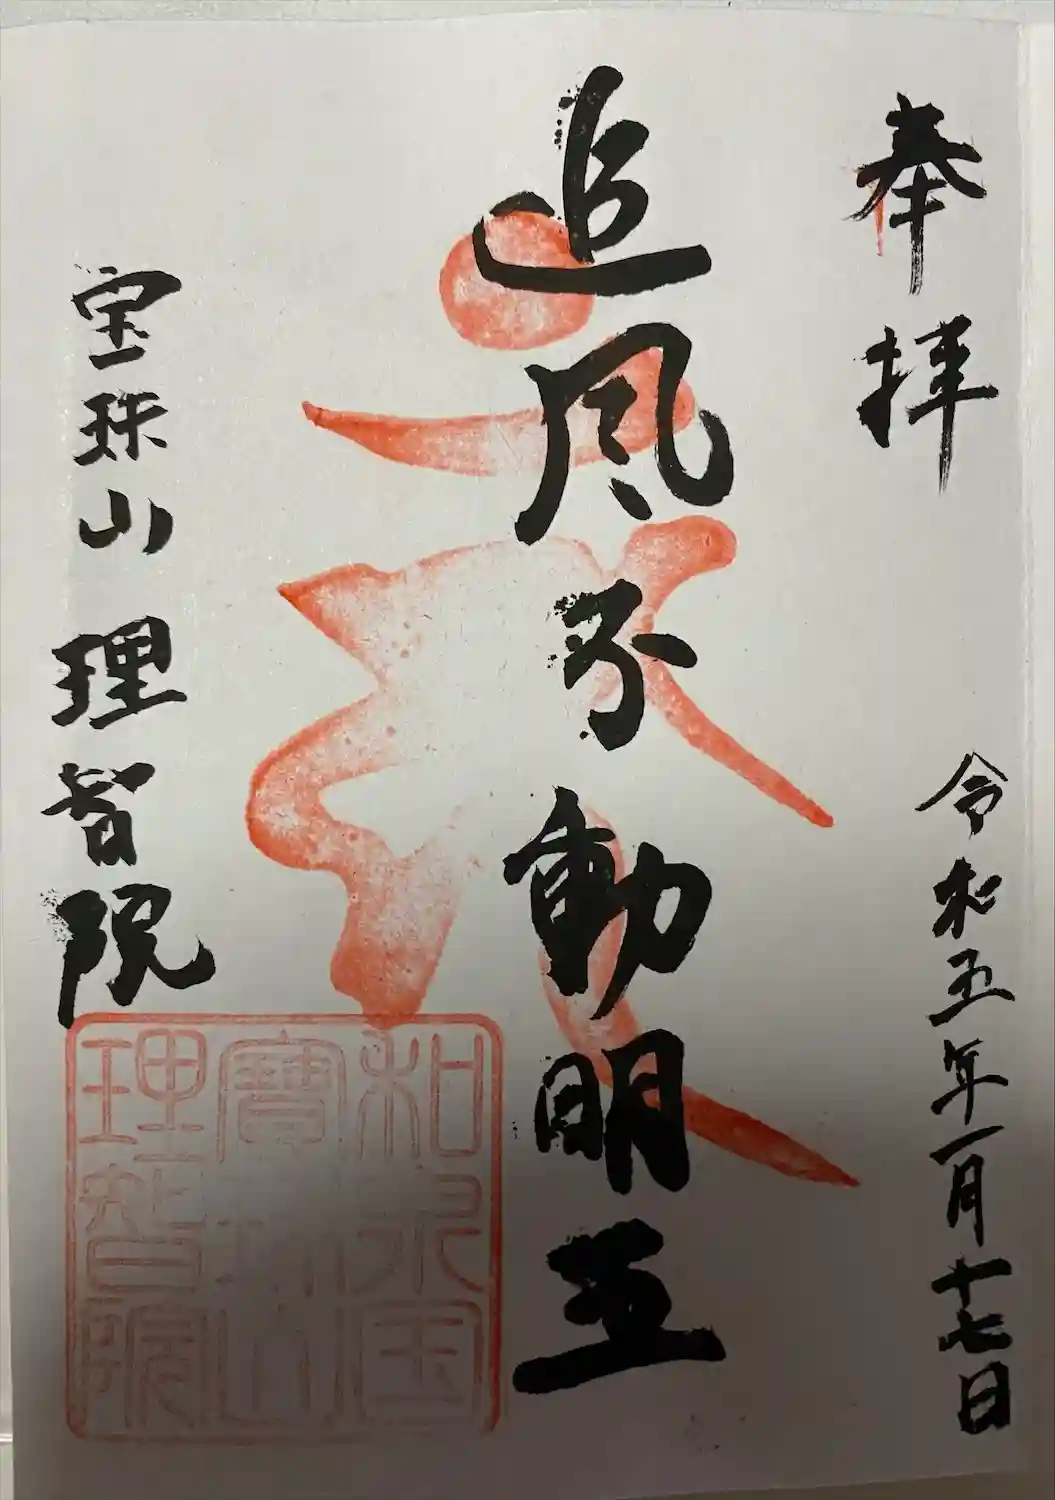 奉拝
令和五年一月十七日
追風不動明王
宝珠山 理智院
和泉国
寶珠山
理智院